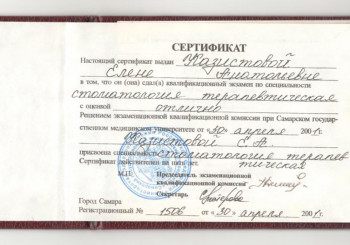 СЕРТИФИКАТ
Настоящий сертификат выдан Казистовой
Елене Анатольевне
в том, что он (она) сдал(а) квалификационный экзамен по специальности
стоматология терапевтическая
с оценкой отлично
Решением экзаменационной квалификационной комиссии при Самарском государ-
ственном медицинском университете от «30» апреля 200
Казистовой Е. А.
присвоена специальность стоматология терапев
тическая
Сертификат действителен
М.П. Председатель экзаменационной
квалификационной комиссии
Секретарь
Город Самара
Регистрационный № 1506 от «30» апреля 200